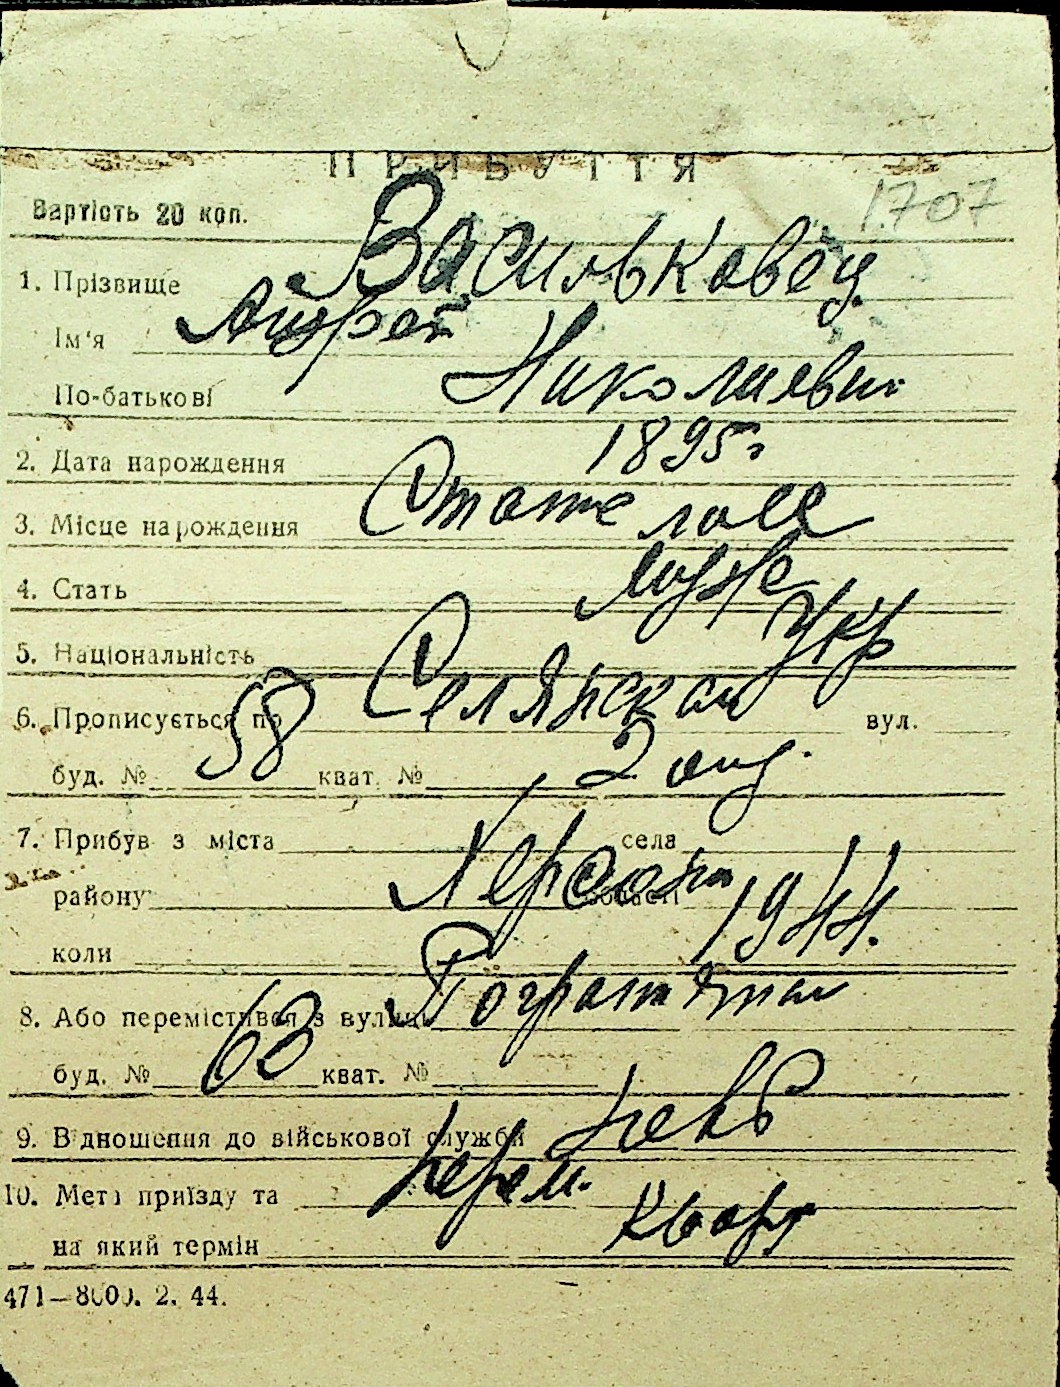 ПРИБУТТЯ
Вартість 20 коп. 1707
1. Прізвище Васильковец
Ім'я Андрей
По-батькові Николаевич
2. Дата нарождення 1895г
3. Місце нарождення
4. Стать муже
5. Національність Укр
6. Прописується по Селянская вул.
буд. № 58 кват. № 2
7. Прибув з міста Херсона села
району області
коли 1944.
8. Або перемістився з вулиці Пограничная
буд. № 63 кват. №
9. Відношення до військової служби
10. Мета приїзду та перем.
на який термін кварт
471—8000. 2. 44.